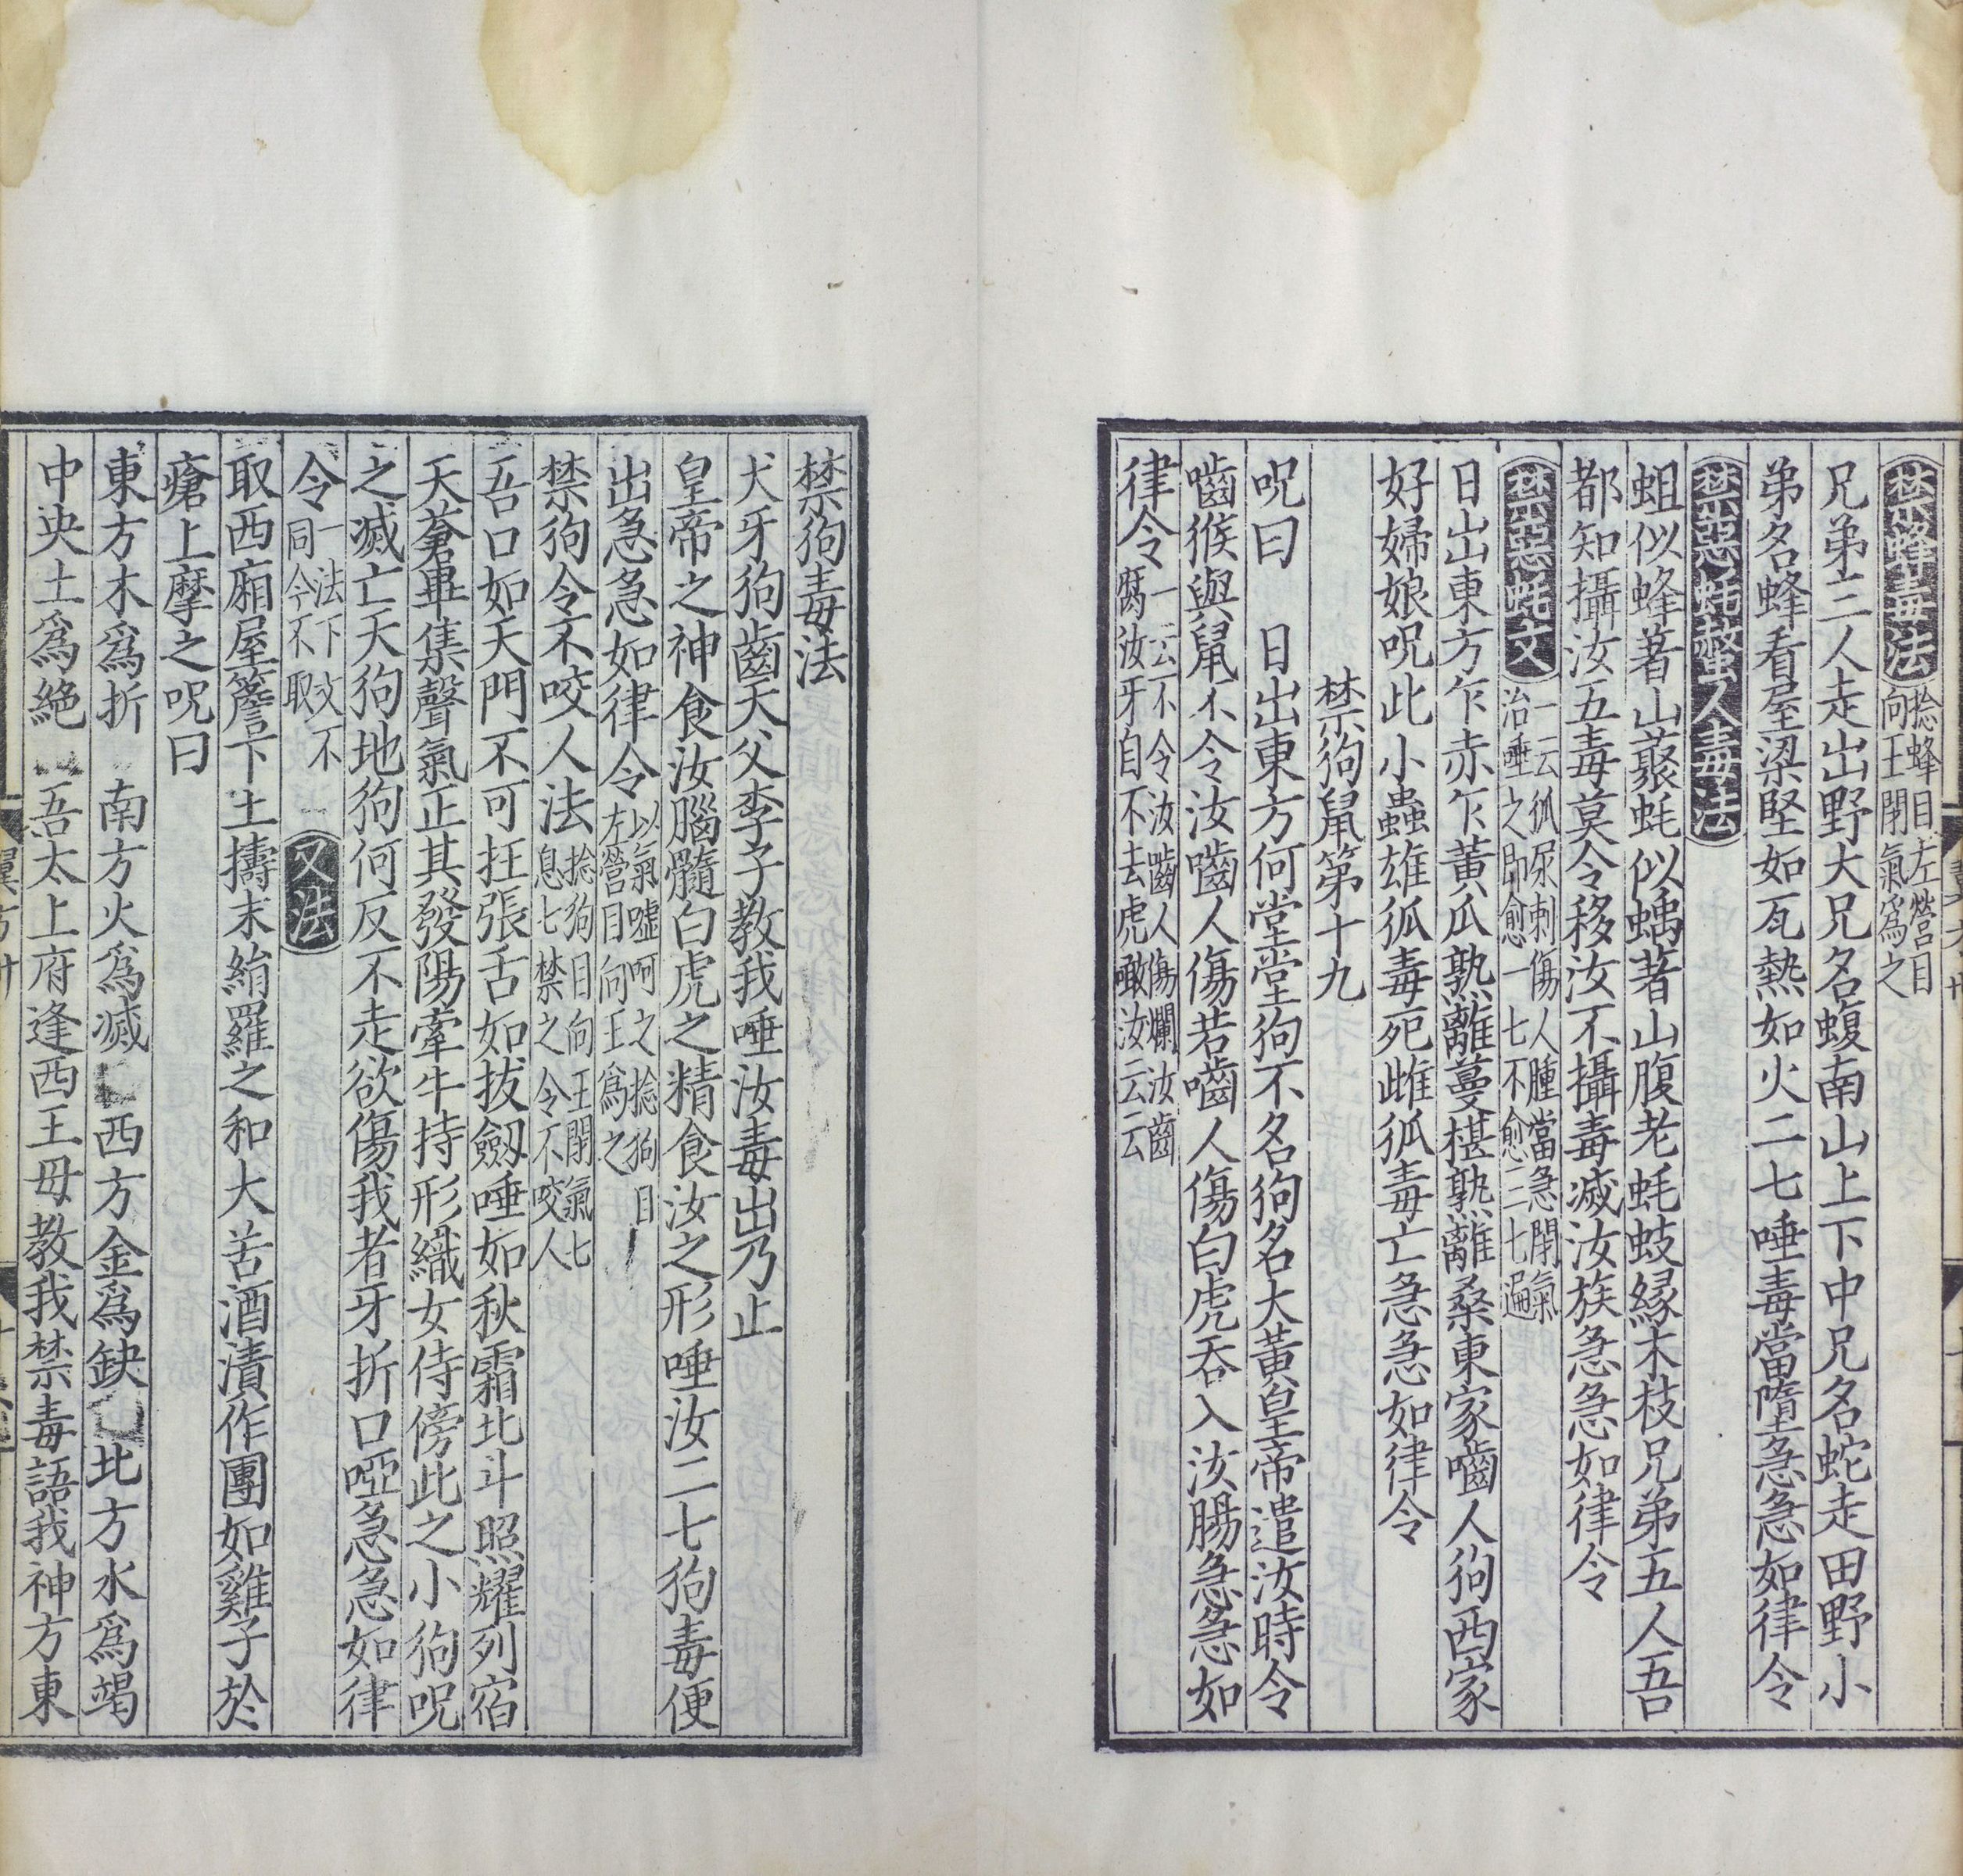 禁蜂毒法捻蜂目左營目向王閉氣為之
兄弟三人走出野大兄名蝮南山上下中兄名蛇走田野小
弟名蜂看屋梁堅如瓦熱如火二七唾毒當墮急急如律令
禁惡蚝螫人毒法
蛆似蜂著山藂蚝似蝺著山腹老蚝蚑緣木枝兄弟五人吾
都知攝汝五毒莫令移汝不攝毒滅汝族急急如律令
禁惡蚝文一云狐尿刺傷人腫當急閉氣治唾之即愈一七不愈二七遍
日出東方乍赤乍黃瓜熟離蔓椹熟離桑東家嚙人狥西家
好婦娘呪此小蟲雄狐毒死雌狐毒亡急急如律令
禁狗鼠第十九
呪曰　日出東方何堂堂狗不名狗名大黃皇帝遣汝時令
嚙猴與鼠不令汝嚙人傷若嚙人傷白虎吞入汝腸急急如
律令一云不令汝嚙人傷爛汝齒腐汝牙自不去虎噉汝云云
禁狗毒法
犬牙狗齒天父李子教我唾汝毒出乃止
皇帝之神食汝腦髓白虎之精食汝之形唾汝二七狗毒便
出急急如律令以氣噓呵之捻狗目左營目向王為之
禁狗令不咬人法捻狗目向王閉氣七息七禁之令不咬人
吾口如天門不可抂張舌如拔劔唾如秋霜北斗照耀列宿
天蒼畢集聲氣正其發陽牽牛持形織女侍傍此之小狗呪
之滅亡天狗地狗何反不走欲傷我者牙折口啞急急如律
令一法下文不同今不取　又法
取西廂屋簷下土擣末絹羅之和大苦酒漬作團如雞子於
瘡上摩之呪曰
東方木為折　南方火為滅　西方金為缺　北方水為竭
中央土為絕　吾太上府逢西王母教我禁毒語我神方東